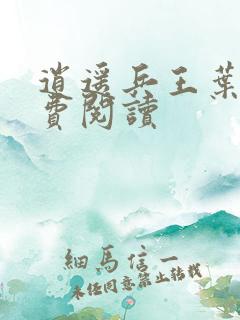 逍遥兵王葉
費閱讀
細馬信一
未經同意禁止轉載